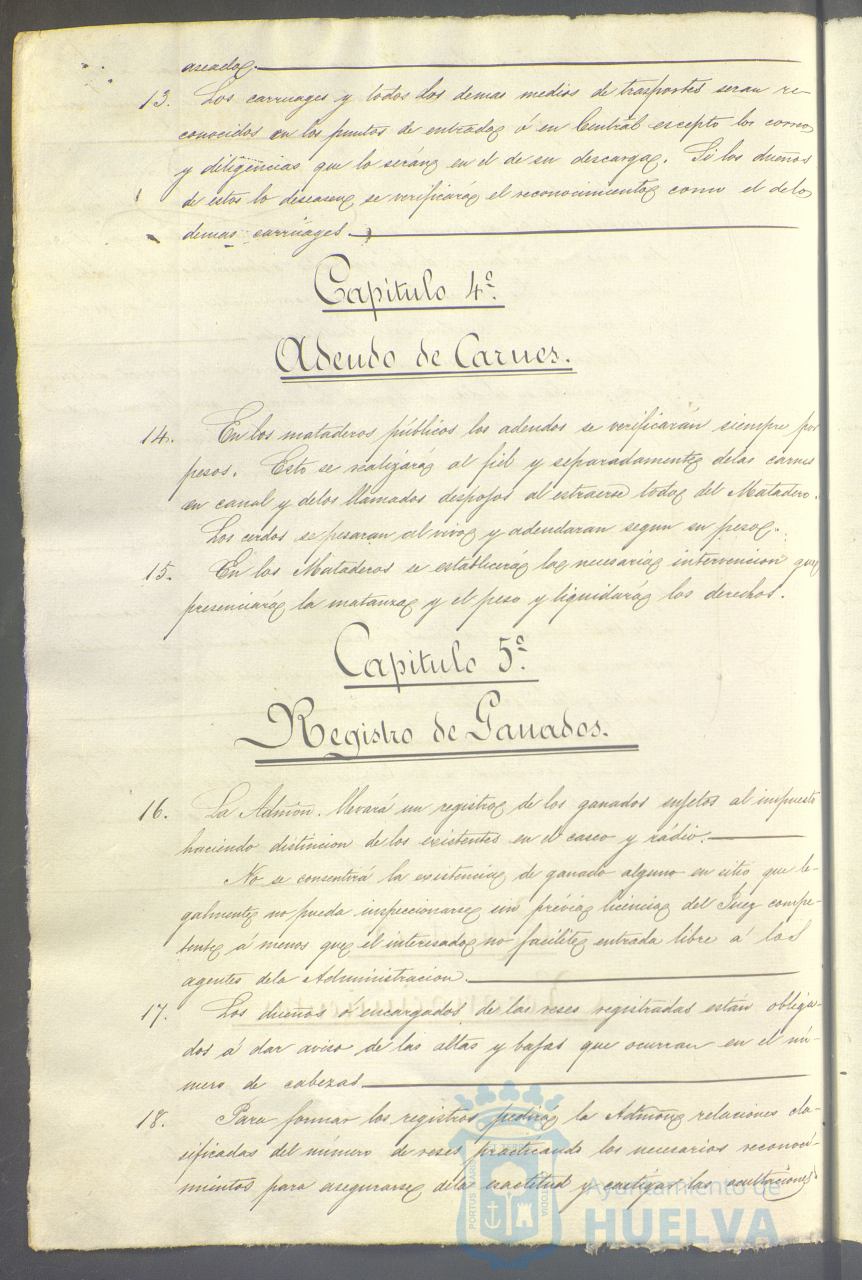 aseado.
13. Los carruages y todos los demas medios de trasportes seran re-
conocidos en los puntos de entrada ó en Central escepto los correos
y diligencias que lo serán en el de su descarga. Si los dueños
de estos lo deseasen se verificará el reconocimiento como el de los
demas carruages.
Capitulo 4º.
Adeudo de Carnes.
14. En los mataderos públicos los adeudos se verificarán siempre por
pesos. Esto se realizará al fiel y separadamente de las carnes
en canal y de los llamados despojos al estraerse todo del Matadero.
Los cerdos se pesaran al vivo y adeudaran segun su peso.
15. En los Mataderos se establecerá la necesaria intervencion que
presenciará la matanza y el peso y liquidará los derechos.
Capitulo 5º.
Registro de Ganados.
16. La Admon. llevará un registro de los ganados sujetos al impuesto
haciendo distincion de los existentes en el casco y rádio.
No se consentirá la existencia de ganado alguno en sitio que le-
galmente no pueda inspeccionarse sin prévia licencia del Juez compe-
tente á menos que el interesado no facilite entrada libre á los
agentes de la Administracion.
17. Los dueños ó encargados de las reses registradas están obliga-
dos á dar aviso de las altas y bajas que ocurran en el nú-
mero de cabezas.
18. Para formar los registros pedirá la Admon relaciones cla-
sificadas del número de reses practicando los necesarios reconoci-
mientos para asegurarse de la exactitud y castigar las ocultaciones
Ayuntamiento de
HUELVA